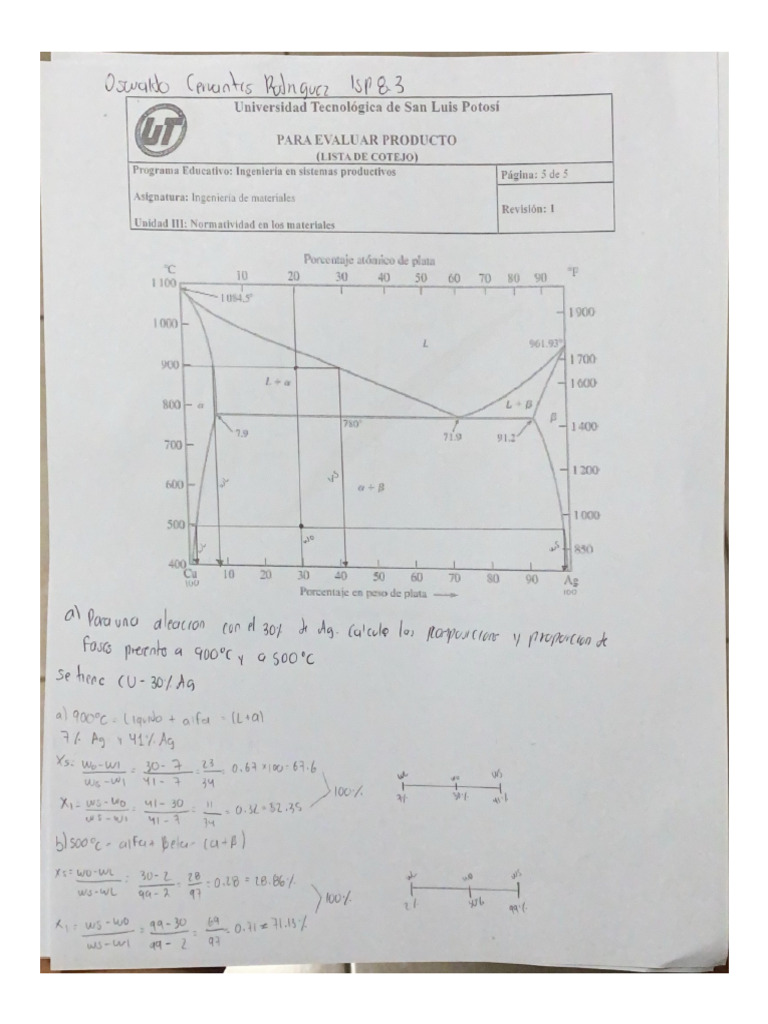 Oswaldo Cervantes Rodriguez ISP 83
Universidad Tecnológica de San Luis Potosí
UT
PARA EVALUAR PRODUCTO
(LISTA DE COTEJO)
Programa Educativo: Ingeniería en sistemas productivos
Página: 5 de 5
Asignatura: Ingeniería de materiales
Revisión: 1
Unidad III: Normatividad en los materiales
Porcentaje atómico de plata
°C 10 20 30 40 50 60 70 80 90 °F
1 100
1 084.5°
1 900
1 000
L 961.93°
1 700
900
L + α
1 600
800 α L + β β
780°
7.9 71.9 91.2
1 400
700
1 200
600
α + β
1 000
500
850
400
Cu 10 20 30 40 50 60 70 80 90 Ag
100 100
Porcentaje en peso de plata
a) Para una aleacion con el 30% de Ag. Calcule las y proporcion de
fases a 900°C y a 500°C
se tiene CU - 30% Ag
a) 900°C = Liquido + alfa = (L+α)
7% Ag y 41% Ag
Xs = wo-wl / ws-wl = 30-7 / 41-7 = 23 / 34 = 0.67 *100 = 67.6
100%
Xl = ws-wo / ws-wl = 41-30 / 41-7 = 11 / 34 = 0.32 = 32.35
wl wo ws
7% 30% 41%
b) 500°C = alfa + Beta = (α+β)
Xs = wo-wl / ws-wl = 30-2 / 99-2 = 28 / 97 = 0.28 = 28.86%
100%
Xl = ws-wo / ws-wl = 99-30 / 99-2 = 69 / 97 = 0.71 = 71.13%
wl wo ws
2% 30% 99%